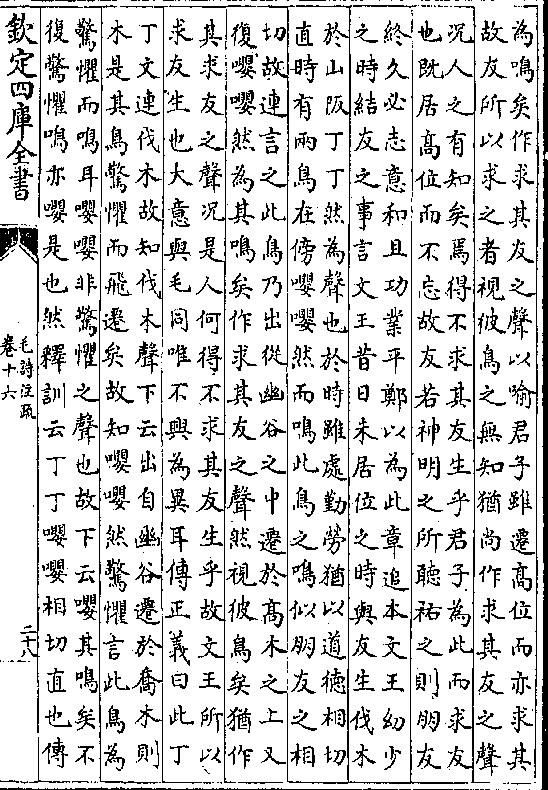 為鳴矣作求其友之聲以喻君子雖遷高位而亦求其
故友所以求之者視彼鳥之無知猶尚作求其友之聲
况人之有知矣焉得不求其友生乎君子為此而求友
也既居高位而不忘故友若神明之所聽祐之則朋友
終久必志意和且功業平鄭以為此章追本文王幼少
之時結友之事言文王昔日未居位之時與友生伐木
於山阪丁丁然為聲也於時雖處勤勞猶以道德相切
直時有兩鳥在傍嚶嚶然而鳴此鳥之鳴似朋友之相
切故連言之此鳥乃出從幽谷之中遷於髙木之上又
復嚶嚶然為其鳴矣作求其友之聲然視彼鳥矣猶作
其求友之聲况是人何得不求其友生乎故文王所以
求友生也大意與毛同唯不興為異耳傳正義曰此丁
丁文連伐木故知伐木聲下云出自幽谷遷於喬木則
木是其鳥驚懼而飛遷矣故知嚶嚶然驚懼言此鳥為
驚懼而鳴耳嚶嚶非驚懼之聲也故下云嚶其鳴矣不
復驚懼鳴亦嚶是也然釋訓云丁丁嚶嚶相切直也傳
欽定四庫全書
毛詩注疏
卷十六
二十八